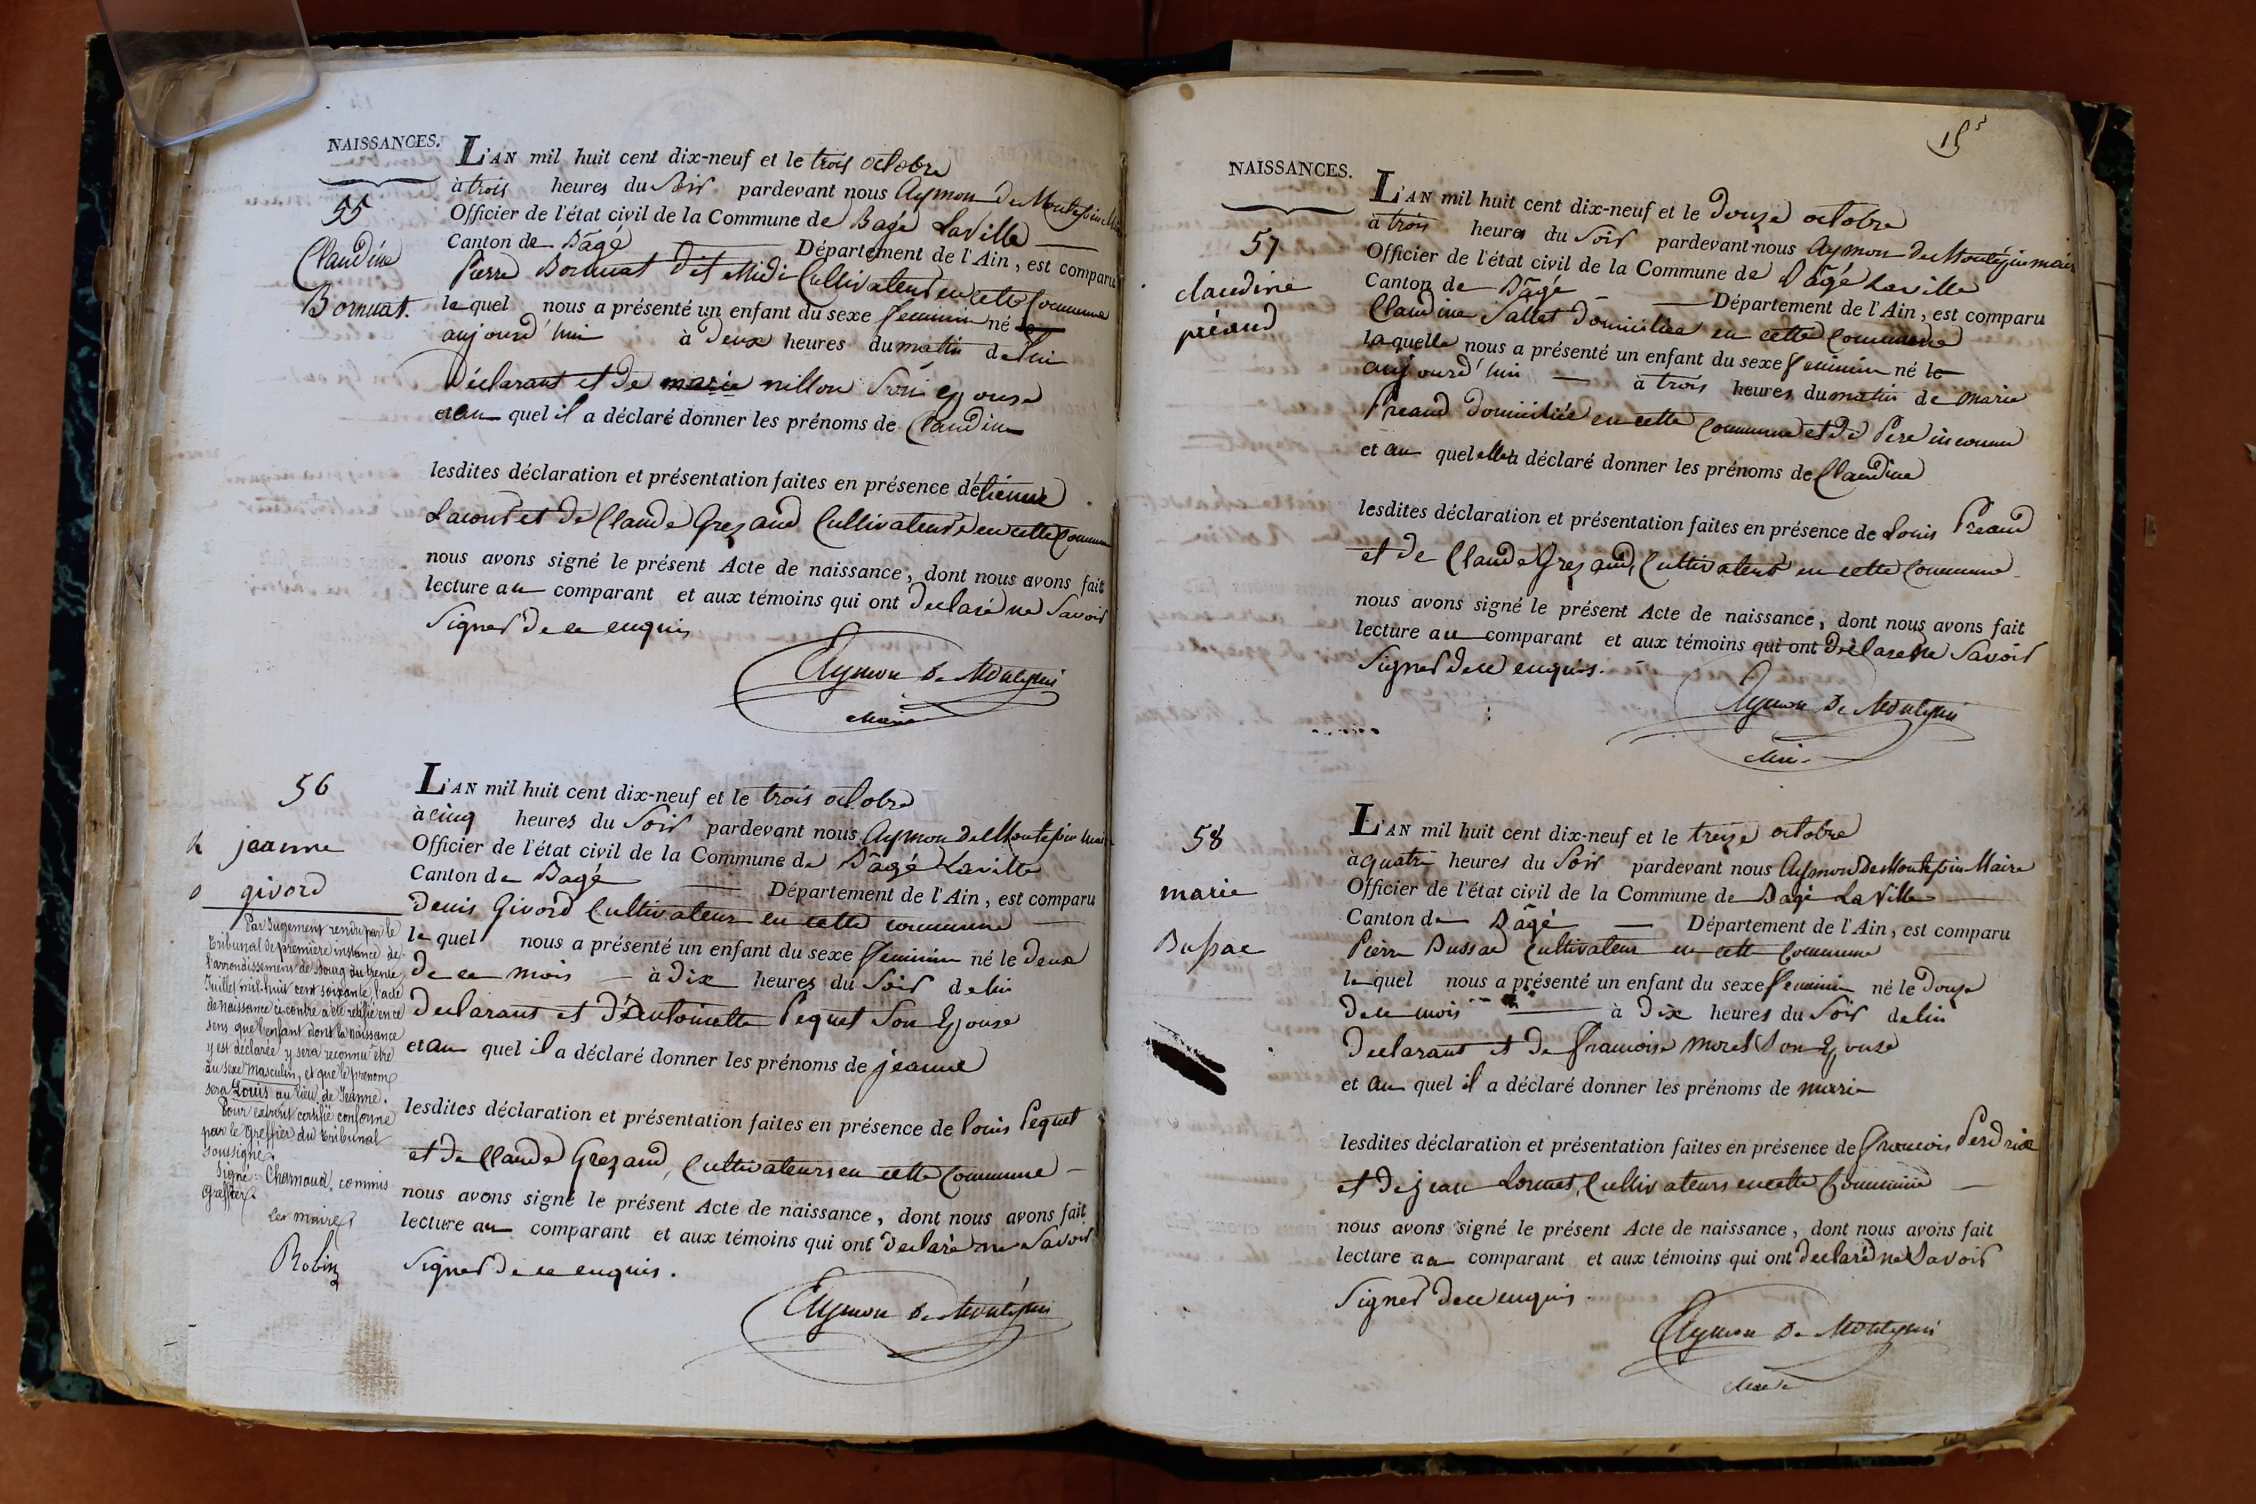 NAISSANCES.
55
Claudine
Bornuat.
L'AN mil huit cent dix-neuf et le trois octobre
à trois heures du Soir pardevant nous Aymon De Montepin
Officier de l'état civil de la Commune de Bagé Laville
Canton de Bâgé Département de l'Ain, est comparu
Pierre Bornuat dit Midi Cultivateur en cette Commune
le quel nous a présenté un enfant du sexe feminin né
aujourd'hui à deux heures du matin de lui
Déclarant et de marie nillon Son Epouse
et au quel il a déclaré donner les prénoms de Claudine
lesdites déclaration et présentation faites en présence détienne
Lacour et de Claude Grezaud Cultivateurs en cette Commune
nous avons signé le présent Acte de naissance, dont nous avons fait
lecture au comparant et aux témoins qui ont declaré ne Savoir
Signer de ce enquis
Aymon De Montepin
Maire
56
jeanne
givord
Par Jugement rendu par le
tribunal de première instance de
l'arrondissement de Bourg du trente
Juillet mil huit cent soixante, l'acte
de naissance ci-contre a été rectifié en ce
sens que l'enfant dont la naissance
y est déclarée y sera reconnu être
du sexe Masculin, et que le prénom
sera Louis au lieu de Jeanne.
Pour extrait certifié conforme
par le greffier du tribunal
soussigné.
Signé: Charnaud, commis
Greffier.
Le maire
Robin
L'AN mil huit cent dix-neuf et le trois octobre
à cinq heures du Soir pardevant nous Aymon De Montepin Maire
Officier de l'état civil de la Commune de Bâgé Laville
Canton de Bagé Département de l'Ain, est comparu
denis Givord Cultivateur en cette commune
le quel nous a présenté un enfant du sexe feminin né le deux
de ce mois à dix heures du Soir de lui
declarant et d'Antoinette Pequet Son Epouse
et au quel il a déclaré donner les prénoms de jeanne
lesdites déclaration et présentation faites en présence de Louis Pequet
et de Claude Grezaud, Cultivateurs en cette Commune
nous avons signé le présent Acte de naissance, dont nous avons fait
lecture au comparant et aux témoins qui ont declaré ne Savoir
Signer de ce enquis.
Aymon De Montepin
15
NAISSANCES.
57
claudine
préaud
L'AN mil huit cent dix-neuf et le douze octobre
à trois heures du Soir pardevant nous Aymon De Montépin maire
Officier de l'état civil de la Commune de Bâgé Laville
Canton de Bâgé Département de l'Ain, est comparu
Claudine Sallet domiciliée en cette Commune
laquelle nous a présenté un enfant du sexe feminin né le
aujourd'hui à trois heures du matin de marie
Preaud domiciliée en cette Commune et de Pere inconnu
et au quel elle a déclaré donner les prénoms de Claudine
lesdites déclaration et présentation faites en présence de Louis Preaud
et de Claude Grezaud, Cultivateurs en cette Commune
nous avons signé le présent Acte de naissance, dont nous avons fait
lecture au comparant et aux témoins qui ont déclaré ne Savoir
Signer de ce enquis.
Aymon De Montepin
Maire
58
marie
Bussac
L'AN mil huit cent dix-neuf et le treize octobre
à quatre heures du Soir pardevant nous Aymon De Montepin Maire
Officier de l'état civil de la Commune de Bagé La Ville
Canton de Bâgé Département de l'Ain, est comparu
Pierre Bussac Cultivateur en cette Commune
le quel nous a présenté un enfant du sexe feminin né le douze
de ce mois à dix heures du Soir de lui
declarant et de francoise morel Son Epouse
et au quel il a déclaré donner les prénoms de marie
lesdites déclaration et présentation faites en présence de francois Perdrix
et de jean Lornet, Cultivateurs en cette Commune
nous avons signé le présent Acte de naissance, dont nous avons fait
lecture au comparant et aux témoins qui ont declaré ne Savoir
Signer de ce enquis.
Aymon De Montepin
Maire